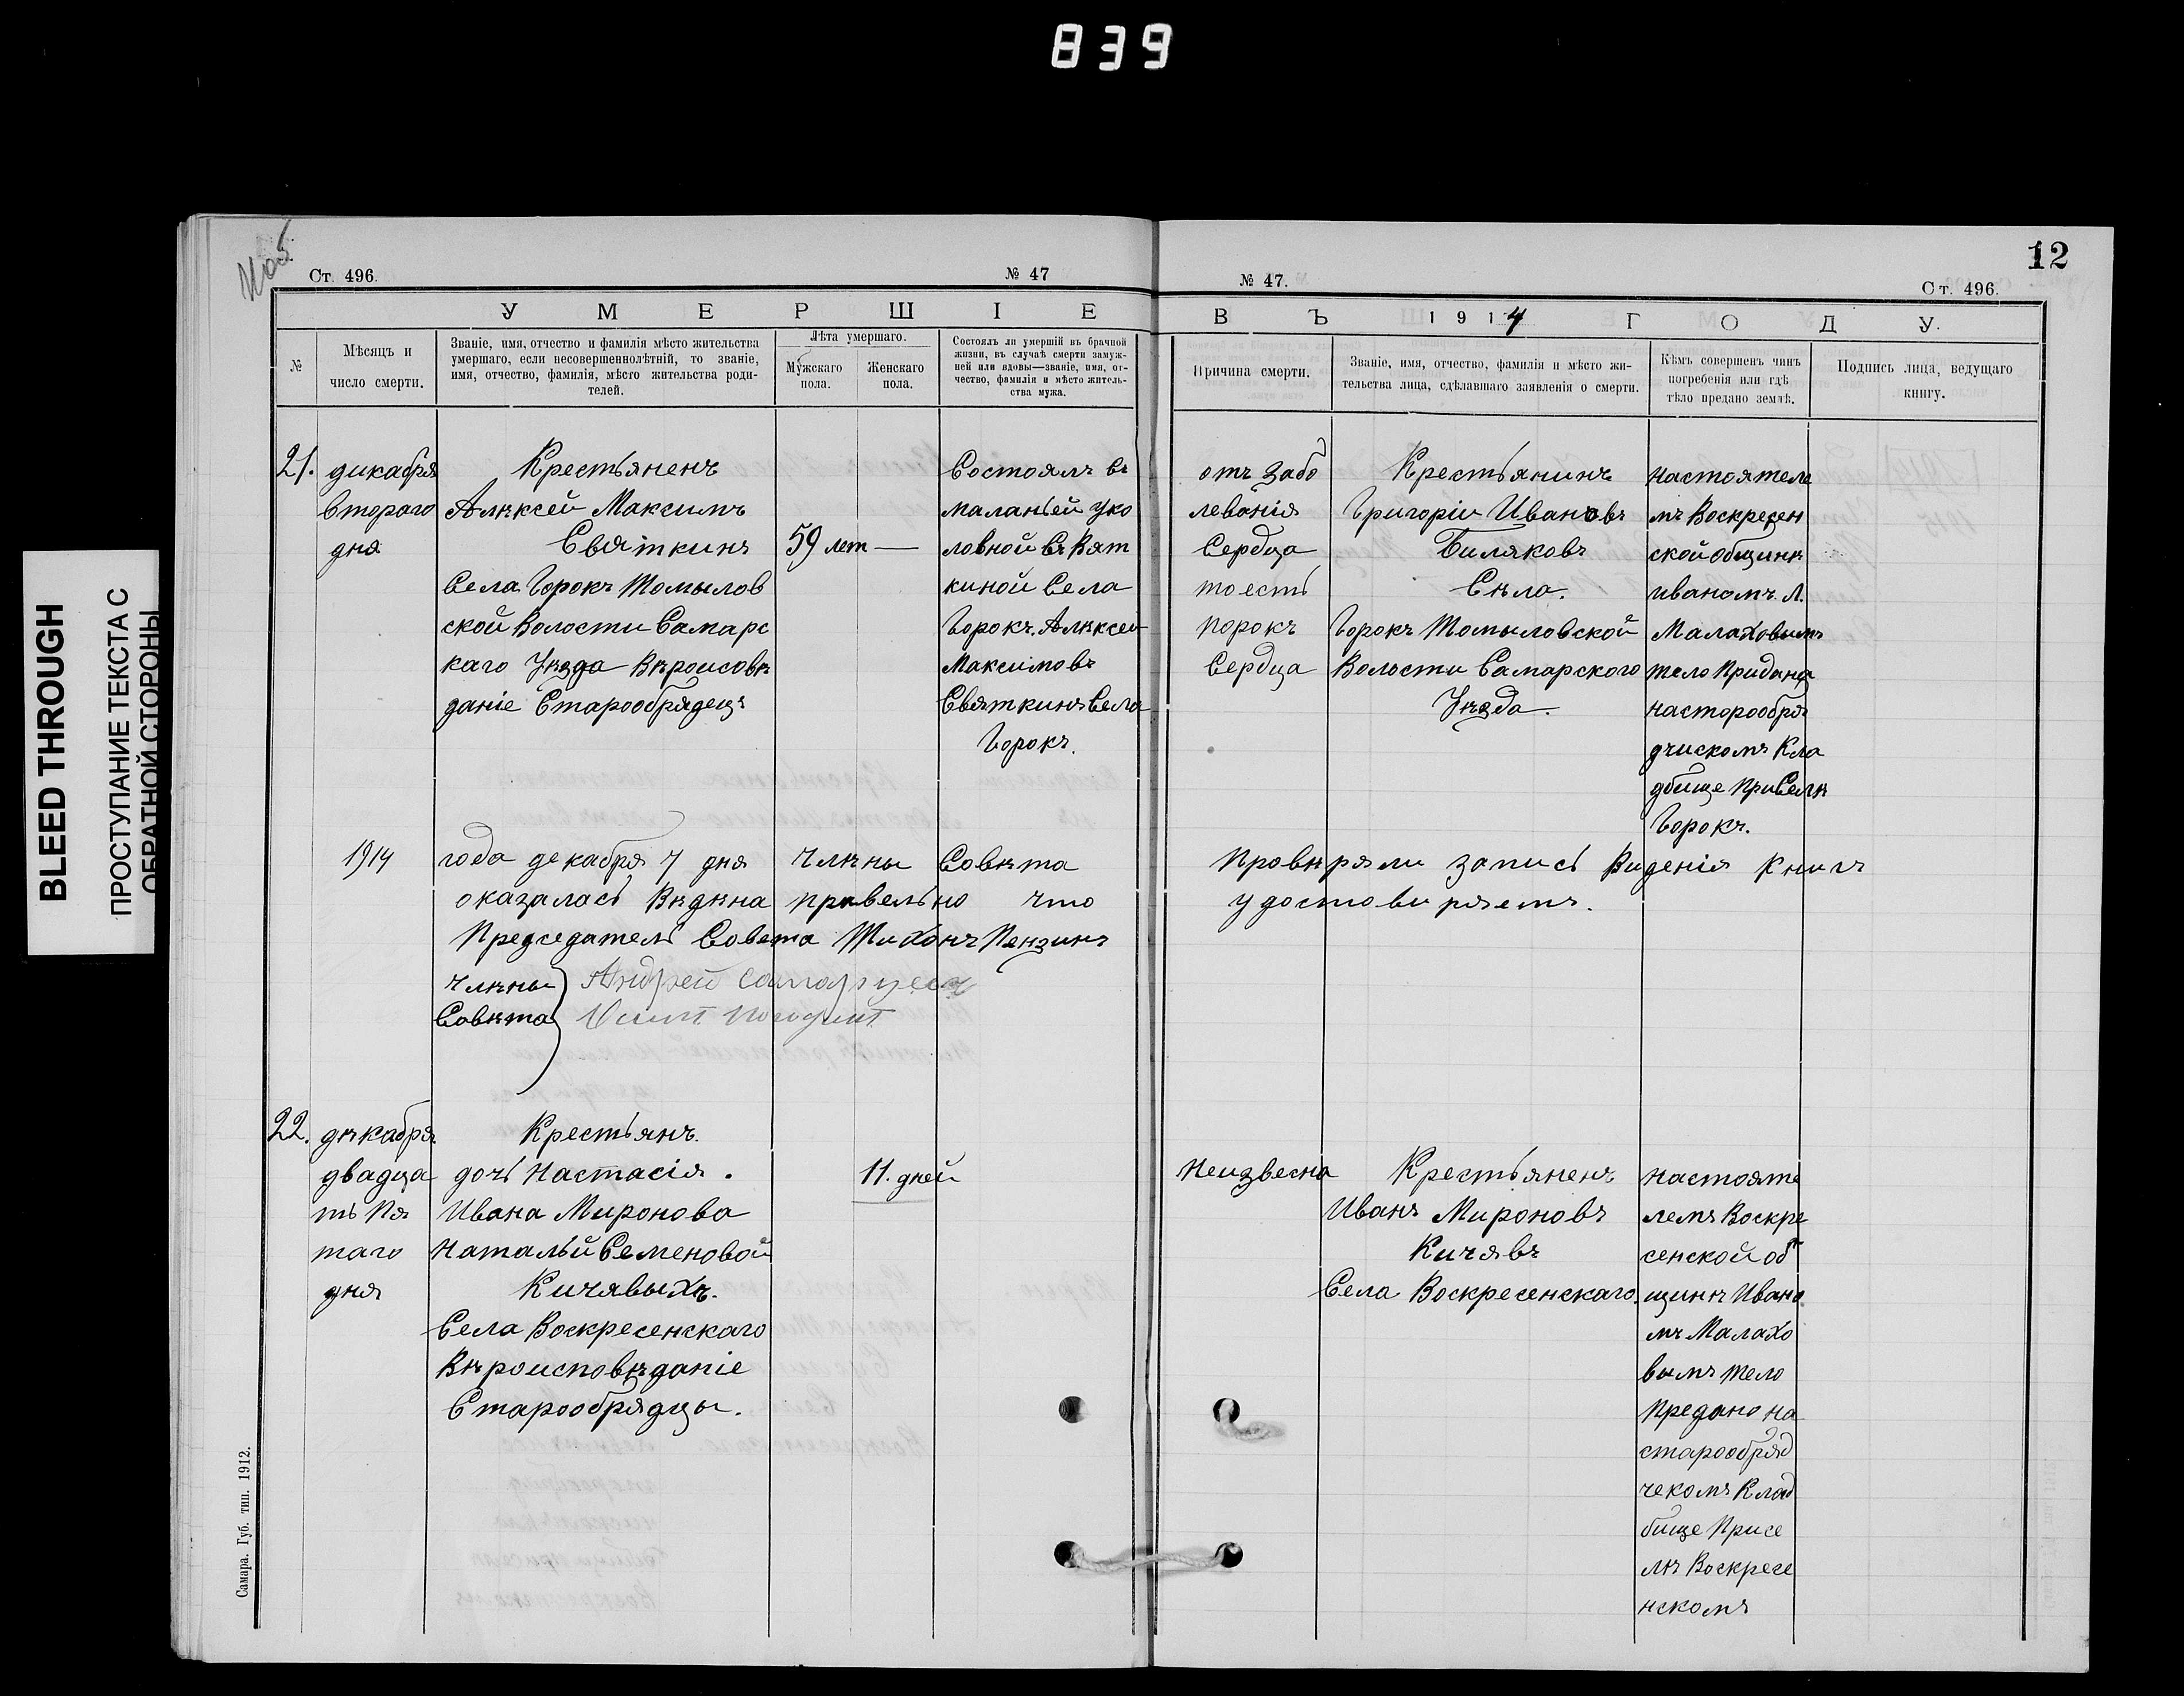 839
BLEED THROUGH
ПРОСТУПАНИЕ ТЕКСТА С
ОБРАТНОЙ СТОРОНЫ
12
Ст. 496.
№ 47
№ 47.
Ст. 496.
УМЕРШІЕ
ВЪ 1914 ГОДУ.
№
Мѣсяцъ и
число смерти.
Званіе, имя, отчество и фамилія мѣсто жительства
умершаго, если несовершеннолѣтній, то званіе,
имя, отчество, фамилія, мѣсто жительства роди-
телей.
Лѣта умершаго.
Мужскаго
пола.
Женскаго
пола.
Состоялъ ли умершій въ брачной
жизни, въ случаѣ смерти замуж-
ней или вдовы—званіе, имя, от-
чество, фамилія и мѣсто житель-
ства мужа.
Причина смерти.
Званіе, имя, отчество, фамилія и мѣсто жи-
тельства лица, сдѣлавшаго заявленія о смерти.
Кѣмъ совершенъ чинъ
погребенія или гдѣ
тѣло предано землѣ.
Подпись лица, ведущаго
книгу.
21.
дикабря
второго
дня
Крестьяненъ
Алѣксей Максимъ
Святкинъ
Села Горокъ Томылов
ской Волости Самарс
каго Уѣзда Вѣроисовѣ
даніе Старообрядецъ
59 лет —
Состоялъ въ
маланьей уко
ловной Святт
киной Села
Горокъ. Алѣксей
Максимовъ
Святкинъ Села
Горокъ.
отъ забо
леванія
Сердца
тоесть
порокъ
Сердца
Крестьянинъ
Григоріи Ивановъ
Биляковъ
Сѣла.
Горокъ Томыловской
Волости Самарского
Уѣзда.
настоятеле
мъ Воскресен
ской общинѣ
иваномъ. Л.
Малаховымъ
тело Придана
насторообря
дчискомъ Кла
дбище приСелѣ
Горокъ.
1914 года декабря 7 дня Члѣны Совѣта Провѣряли запись Виденія Книгъ
оказалась Вѣдѣна правельно что удостовиряемъ.
Председатель Совета Тихонъ Пензинъ
Члѣны
Совѣта
Андрей
22.
дѣкабря
двадца
ть Пя
таго
дня
Крестьянъ.
дочь Настасія.
Ивана Миронова
Натальй Семеновой
Кичявыхъ.
Села Воскресенскаго
Вѣроисповѣданіе
Старообрядцы.
11. дней
Неизвесна
Крестьяненъ
Иванъ Мироновъ
Кичявъ
Села Воскресенскаго.
настояте
лемъ Воскре
сенской об
щинѣ Ивано
мъ Малахо
вымъ тело
Предано на
старообряд
чекомъ Клад
бище Присе
лѣ Воскресе
нскомъ
Самара. Губ. тип. 1912.